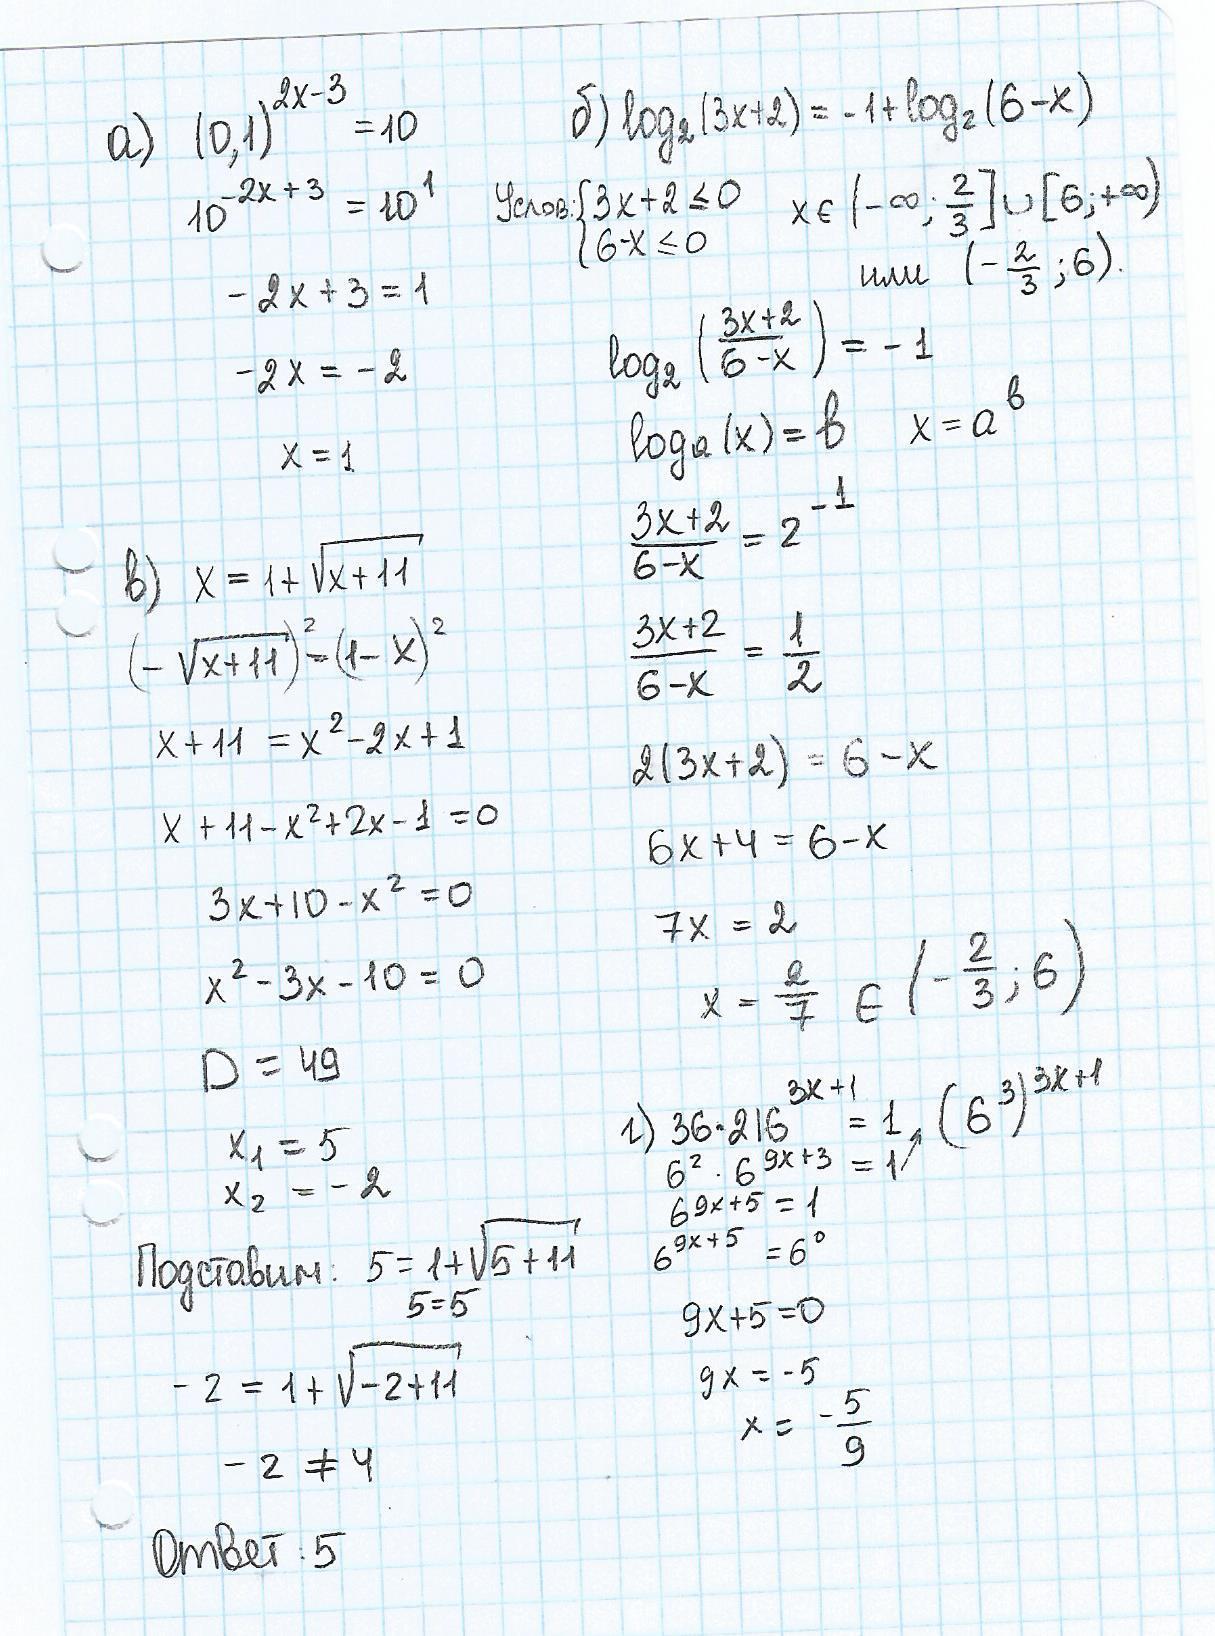 а) (0,1)^{2x-3} = 10
10^{-2x+3} = 10^1
-2x+3 = 1
-2x = -2
x = 1
в) x = 1+√(x+11)
(-√(x+11))^2 = (1-x)^2
x+11 = x^2-2x+1
x+11-x^2+2x-1 = 0
3x+10-x^2 = 0
x^2-3x-10 = 0
D = 49
x_1 = 5
x_2 = -2
Подставим: 5 = 1+√(5+11)
5=5
-2 = 1+√(-2+11)
-2 ≠ 4
Ответ: 5
б) log_2(3x+2) = -1+log_2(6-x)
Услов: {3x+2 ≤ 0 x ∈ (-∞; 2/3] ∪ [6; +∞)
{6-x ≤ 0 или (-2/3; 6).
log_2((3x+2)/(6-x)) = -1
log_a(x) = b x = a^b
(3x+2)/(6-x) = 2^{-1}
(3x+2)/(6-x) = 1/2
2(3x+2) = 6-x
6x+4 = 6-x
7x = 2
x = 2/7 ∈ (-2/3; 6)
г) 36·216^{3x+1} = 1 ↗ (6^3)^{3x+1}
6^2 · 6^{9x+3} = 1
6^{9x+5} = 1
6^{9x+5} = 6^0
9x+5 = 0
9x = -5
x = -5/9